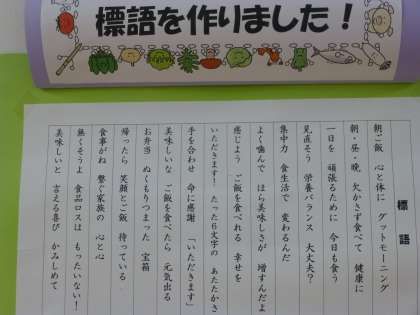 標語を作りました！
標語
朝ご飯　心と体に　グットモーニング
朝・昼・晩　欠かさず食べて　健康に
一日を　頑張るために　今日も食う
見直そう　栄養バランス　大丈夫？
集中力　食生活で　変わるんだ
よく噛んで　ほら美味しさが　増すんだよ
感じよう　ご飯を食べれる　幸せを
いただきます！　たった6文字の　あたたかさ
手を合わせ　命に感謝　「いただきます」
美味しいな　ご飯を食べたら　元気出る
お弁当　ぬくもりつまった　宝箱
帰ったら　笑顔とご飯　待っている
食事がね　繋ぐ家族の　心と心
無くそうよ　食品ロスは　もったいない！
美味しいと　言える喜び　かみしめて